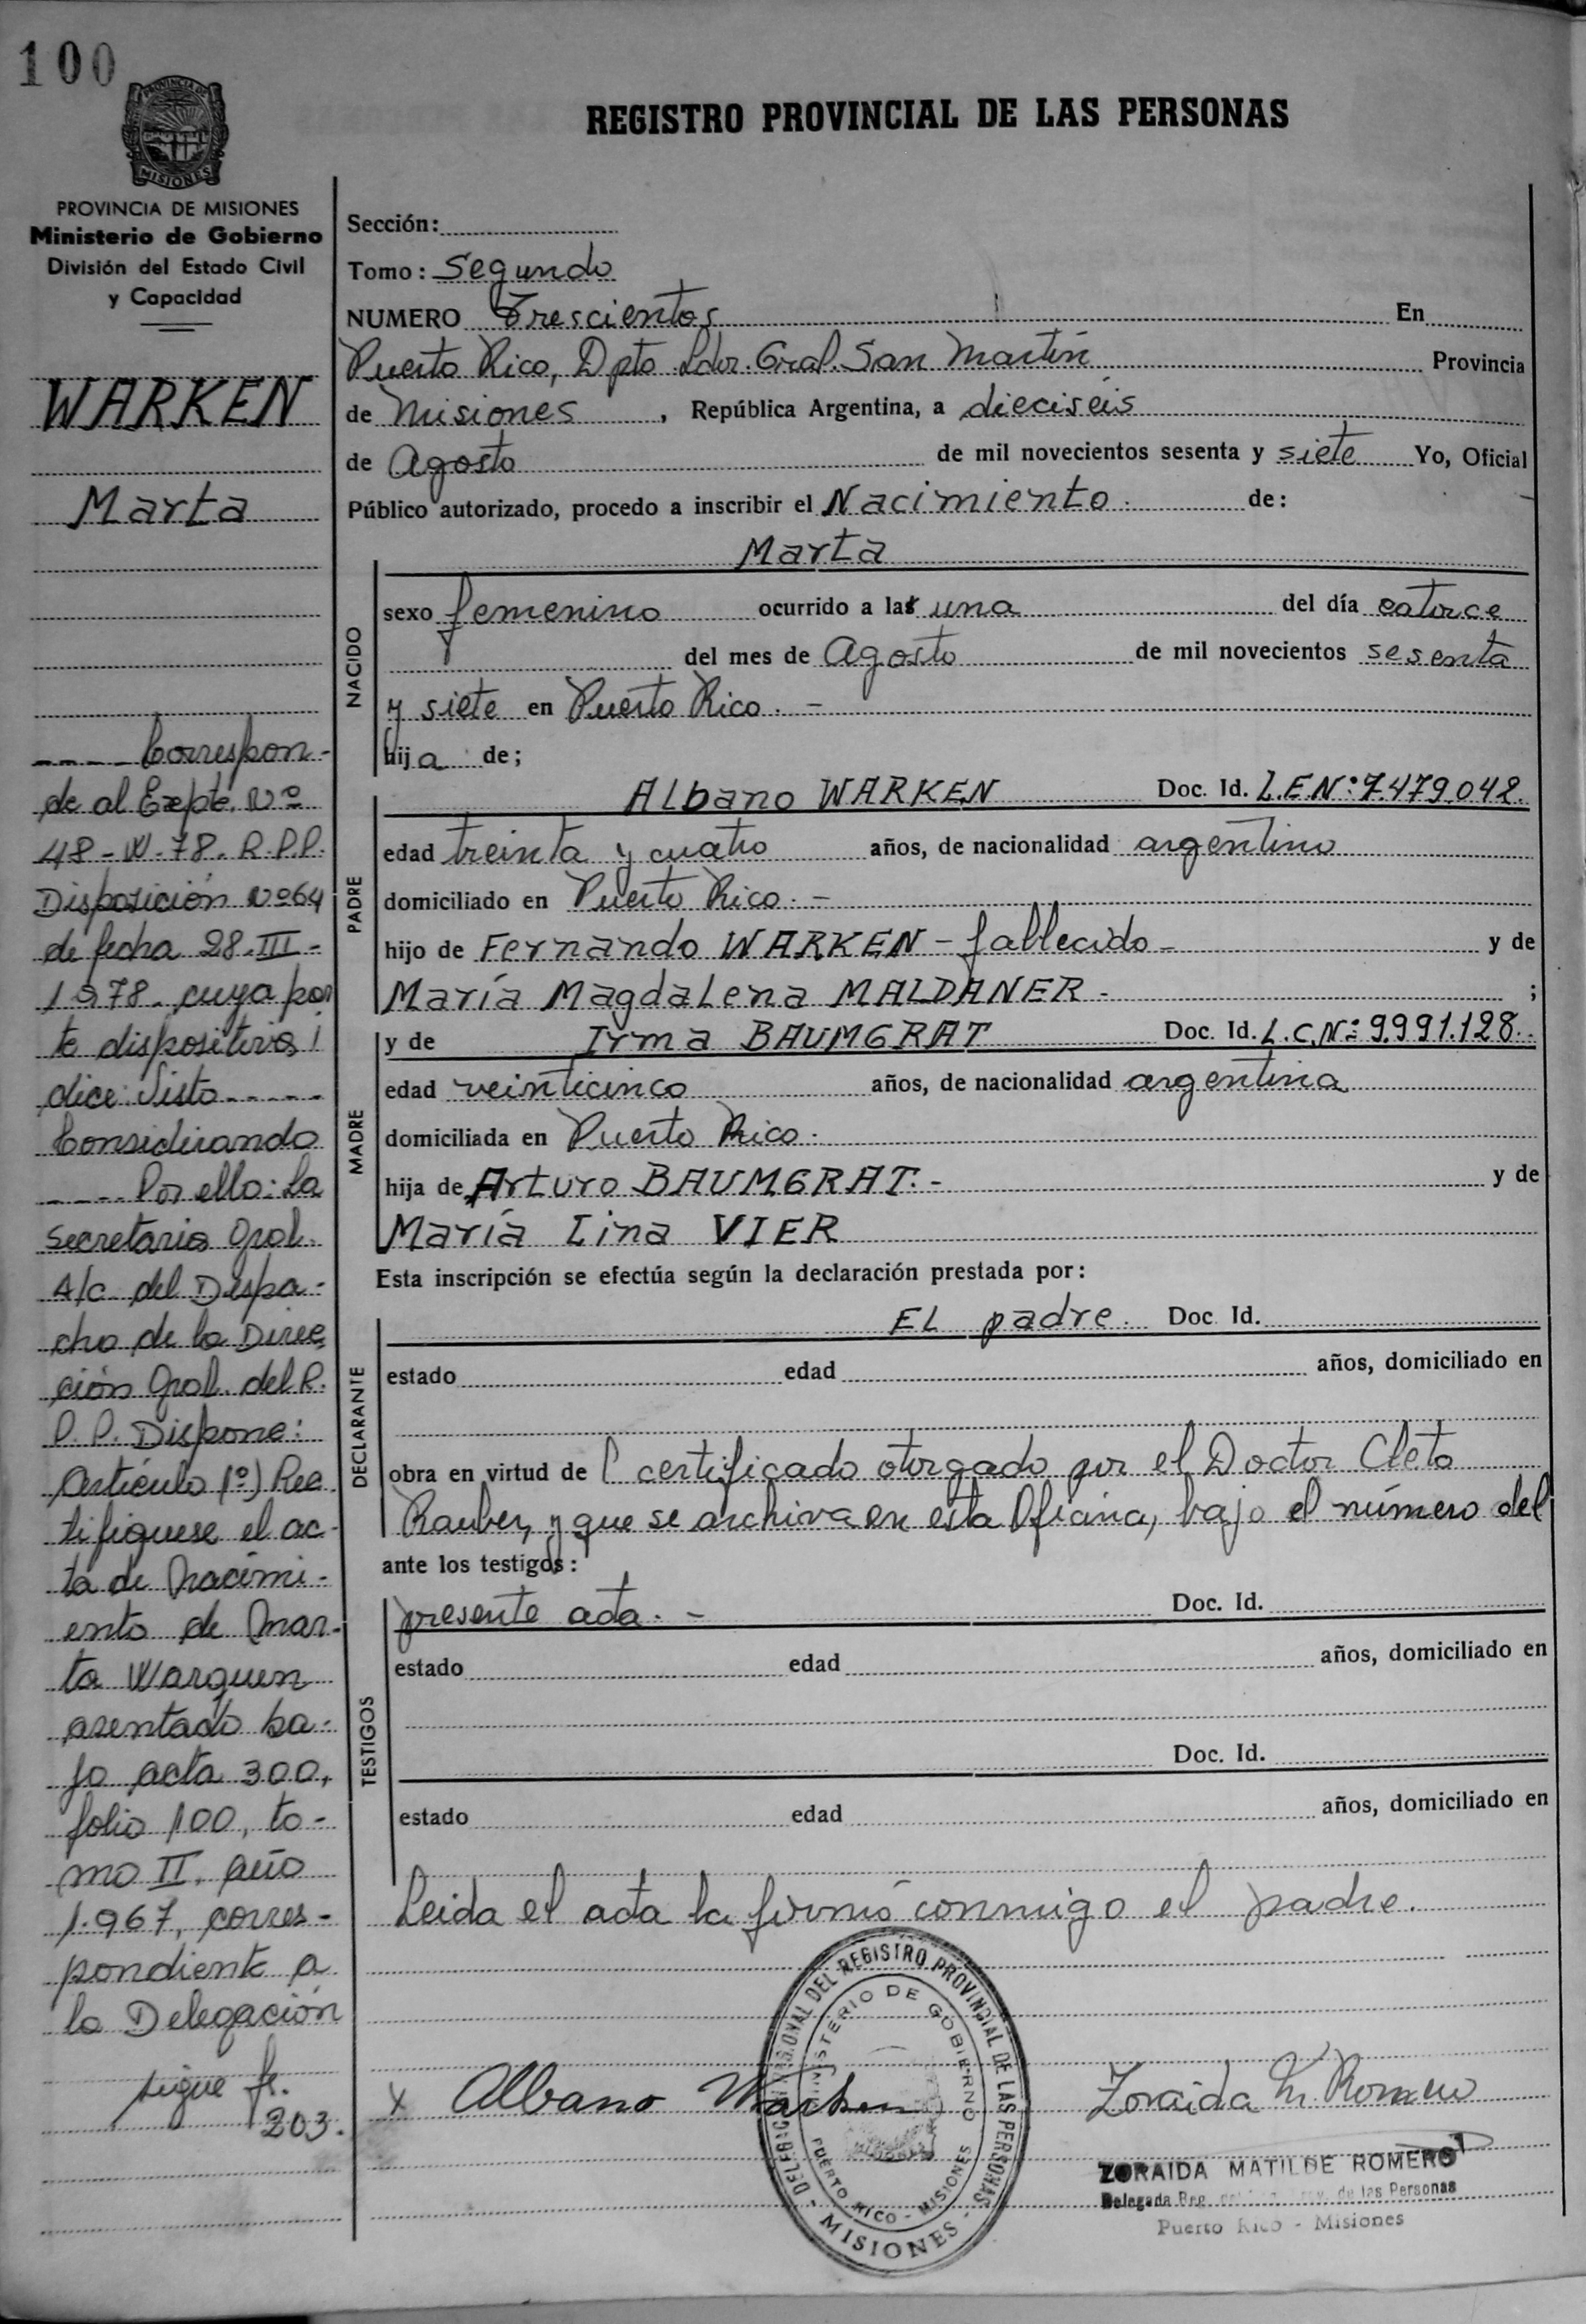 100
PROVINCIA DE
MISIONES
PROVINCIA DE MISIONES
Ministerio de Gobierno
División del Estado Civil
y Capacidad
WARKEN
Marta
---- Correspon-
de al Expte. Nº
48-W-78. R.P.P.
Disposición Nº 64
de fecha 28-III-
1978. cuya par
te dispositiva
dice: Visto-----
Considerando
---- Por ello: La
Secretaria Gral.
A/c del Despa-
cho de la Direc
ción Gral. del R.
P.P. Dispone:
Artículo 1º) Rec
tifiquese el ac-
ta de Nacimi-
ento de Mar-
ta Warquen
asentado ba-
jo acta 300,
folio 100, to-
mo II, año
1.967, corres-
pondiente a
la Delegación
sigue fs.
203.
REGISTRO PROVINCIAL DE LAS PERSONAS
Sección:
Tomo: Segundo
NUMERO Trescientos En
Puerto Rico, Dpto. Ldor. Gral. San Martín Provincia
de Misiones, República Argentina, a dieciséis
de Agosto de mil novecientos sesenta y siete Yo, Oficial
Público autorizado, procedo a inscribir el Nacimiento. de:
NACIDO
Marta
sexo femenino ocurrido a las una del día catorce
del mes de Agosto de mil novecientos sesenta
y siete en Puerto Rico. -
hija de;
PADRE
Albano WARKEN Doc. Id. L.E.Nº: 7.479.042.
edad treinta y cuatro años, de nacionalidad argentino
domiciliado en Puerto Rico. -
hijo de Fernando WARKEN - fallecido - y de
María Magdalena MALDANER - ;
MADRE
y de Irma BAUMGRAT Doc. Id. L.C.Nº: 9.991.128.
edad veinticinco años, de nacionalidad argentina
domiciliada en Puerto Rico.
hija de Arturo BAUMGRAT. - y de
María Lina VIER
Esta inscripción se efectúa según la declaración prestada por:
DECLARANTE
EL padre. Doc. Id.
estado edad años, domiciliado en
obra en virtud de l certificado otorgado por el Doctor Cleto
Rauber, y que se archiva en esta Oficina, bajo el número del
ante los testigos:
TESTIGOS
presente acta. - Doc. Id.
estado edad años, domiciliado en
Doc. Id.
estado edad años, domiciliado en
Leida el acta la firmó conmigo el padre.
x Albano Warken
Zoraida M. Romero
DEL REGISTRO PROVINCIAL DE LAS PERSONAS
MINISTERIO DE GOBIERNO
PUERTO RICO - MISIONES
- MISIONES -
ZORAIDA MATILDE ROMERO
Delegada de las Personas
Puerto Rico - Misiones